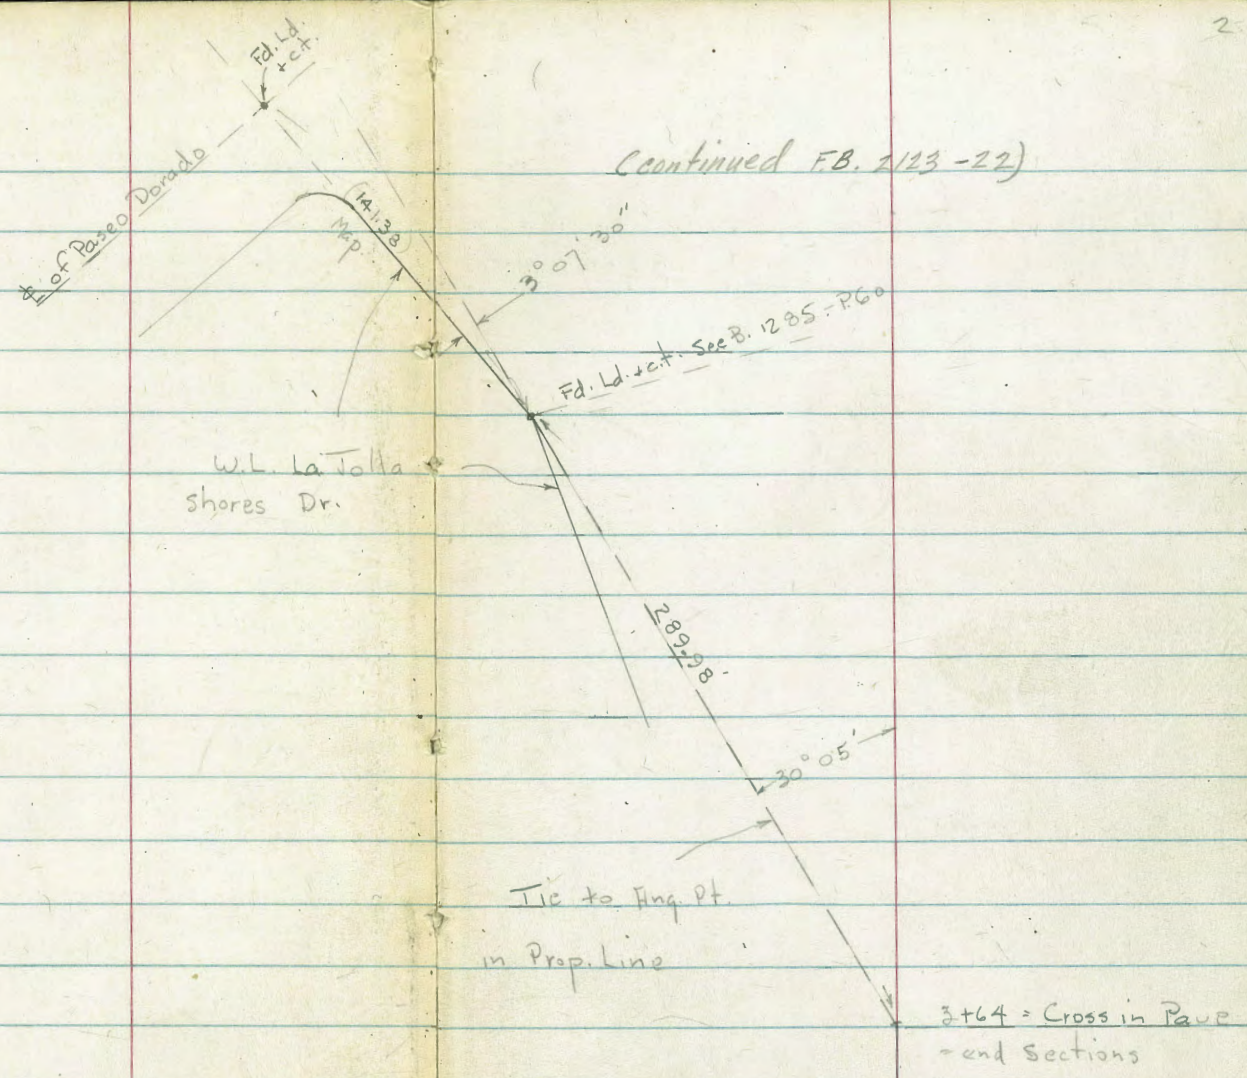 2
Fd. Ld.
+ c.t.
(continued F.B. 2123-22)
℄ of Paseo Dorado
(141.38)
Map
3° 07' 30"
Fd. Ld. + c.t. See B. 1285 - P.60
W.L. La Jolla
Shores Dr.
289.98'
30° 05'
Tie to Ang. Pt.
in Prop. Line
3+64 = Cross in Pave
- end Sections